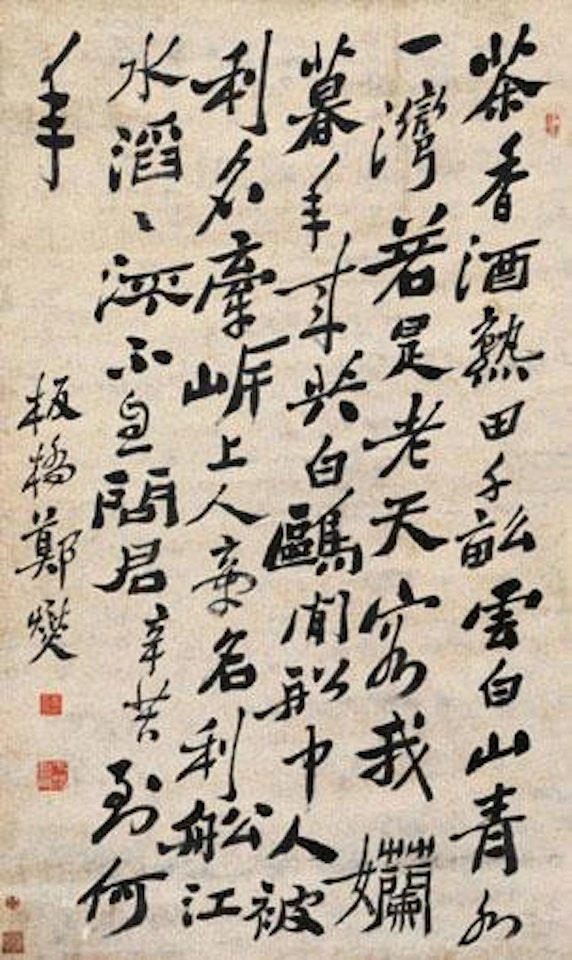 茶香酒熟田千畝雲白山青水
一灣若是老天容我嬾
暮年来共白鷗閒船中人被
利名牽岸上人牽名利船江
水滔〻流不息問君辛苦到何
年
板橋鄭燮